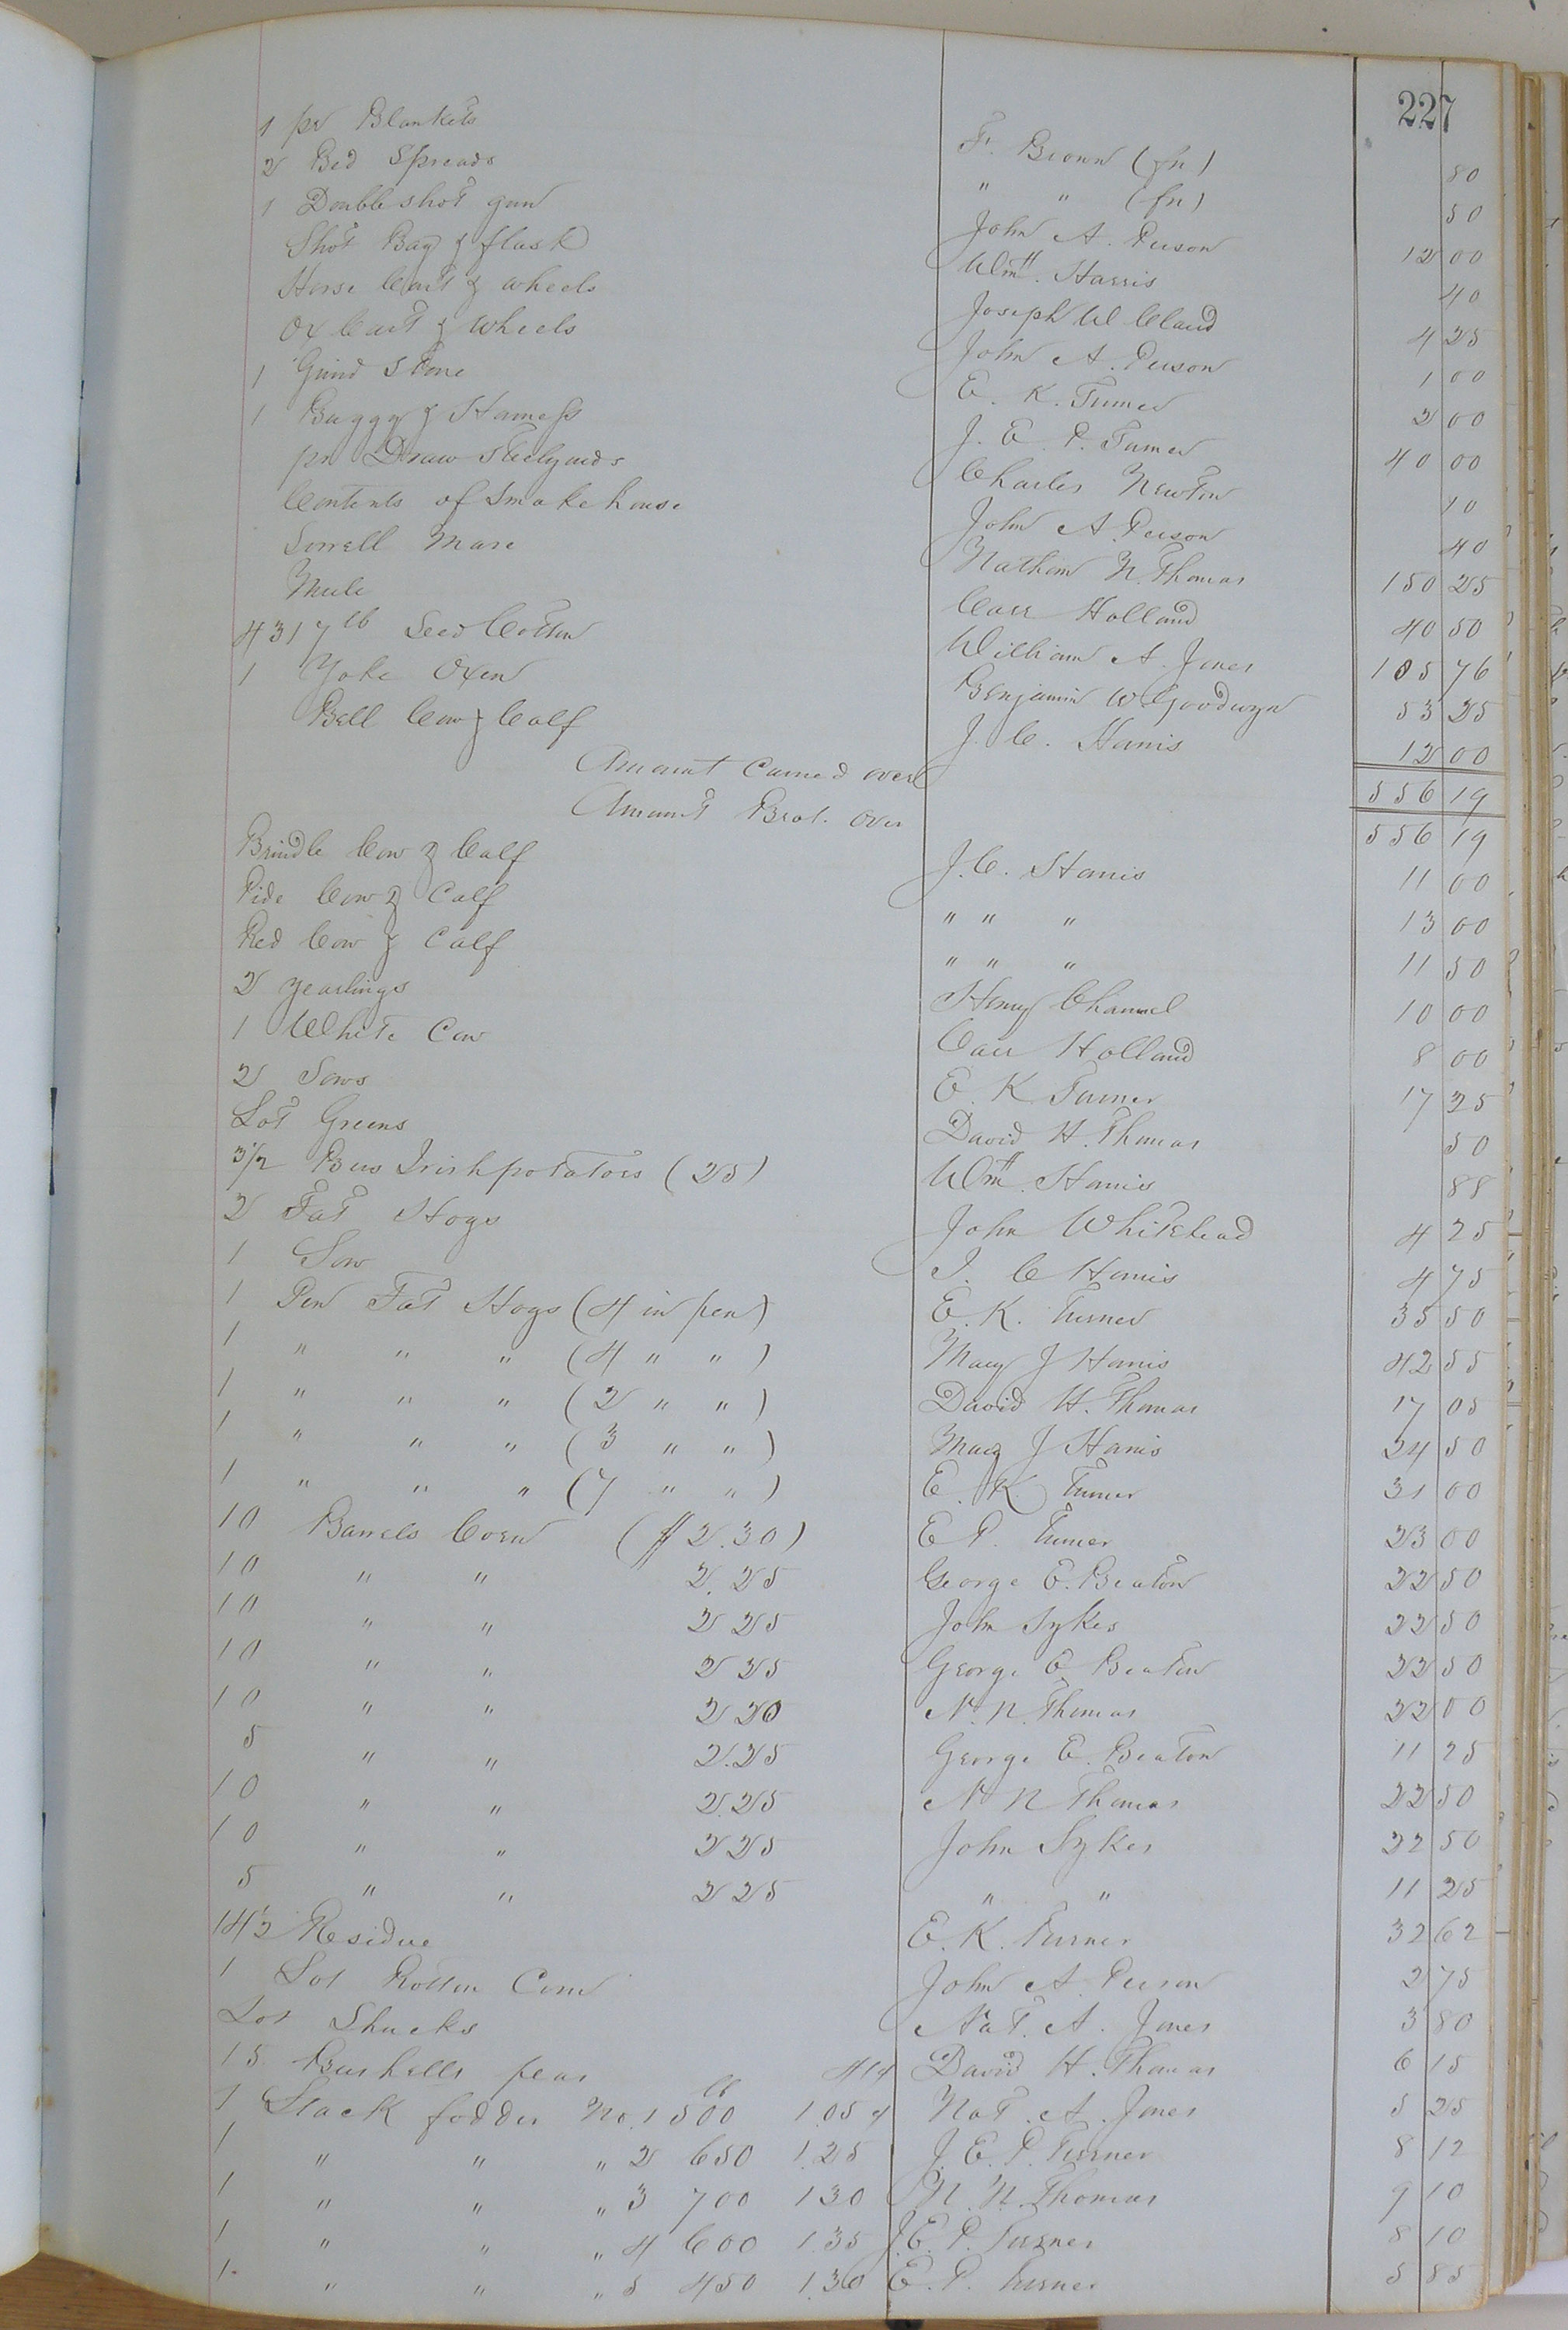 227
1 pr Blankets F. Brown (fn) 80
2 Bed Spreads " " (fn) 50
1 Double shot gun John A. Person 12 00
Shot Bag & flask Wm H. Harris 40
Horse Cart & wheels Joseph W Claud 4 25
Ox Cart & Wheels John A. Person 1 00
1 Grind Stone E. K. Turner 2 00
1 Buggy & Harness J. E. P. Turner 40 00
pr Draw Stelyards Charles Newton 10
Contents of Smoke house John A. Person 40
Sorrell Mare Nathan N. Thomas 150 25
Mule Carr Holland 40 50
4317 lb Seed Cotton William A. Jones 105 76
1 Yoke Oxen Benjamin W Goodwyn 53 25
Bell Cow & Calf J. C. Harris 12 00
Amount Carried over 556 19
Amount Brot. Over 556 19
Brindle Cow & Calf J. C. Harris 11 00
Pide Cow & Calf " " " 13 00
Red Cow & Calf " " " 11 50
2 yearlings Henry Channel 10 00
1 White Cow Carr Holland 8 00
2 Sows E. K Turner 17 25
Lot Greens David H. Thomas 50
3 1/2 Bus Irish potatoes (25) Wm H. Harris 88
2 Fat Hogs John Whitehead 4 25
1 Sow J. C Harris 4 75
1 Pen Fat Hogs (4 in pen) E. K. Turner 35 50
1 " " " (4 " " ) Mary J Harris 42 55
1 " " " (2 " " ) David H. Thomas 17 05
1 " " " (3 " " ) Mary J Harris 24 50
1 " " " (7 " " ) E. K Turner 31 00
10 Barrels Corn ($ 2.30) E P. Turner 23 00
10 " " 2.25 George E. Beaton 22 50
10 " " 2 25 John Sykes 22 50
10 " " 2 25 George E Beaton 22 50
10 " " 2 20 N. N. Thomas 22 00
5 " " 2.25 George E. Beaton 11 25
10 " " 2.25 N N Thomas 22 50
10 " " 2 25 John Sykes 22 50
5 " " 2 25 " " 11 25
14 1/2 Residue E. K. Turner 32 62
1 Lot Rotten Corn John A. Person 2 75
Lot Shucks Nat. A. Jones 3 80
15 Bushells peas 41¢ David H. Thomas 6 15
1 Stack fodder No. 1 500 lb 1.05¢ Nat. A. Jones 5 25
1 " " " 2 650 1.25 J. E. P. Turner 8 12
1 " " " 3 700 1 30 N. N. Thomas 9 10
1 " " " 4 600 1.35 J. E. P. Turner 8 10
1 " " " 5 450 1.30 E. P. Turner 5 85